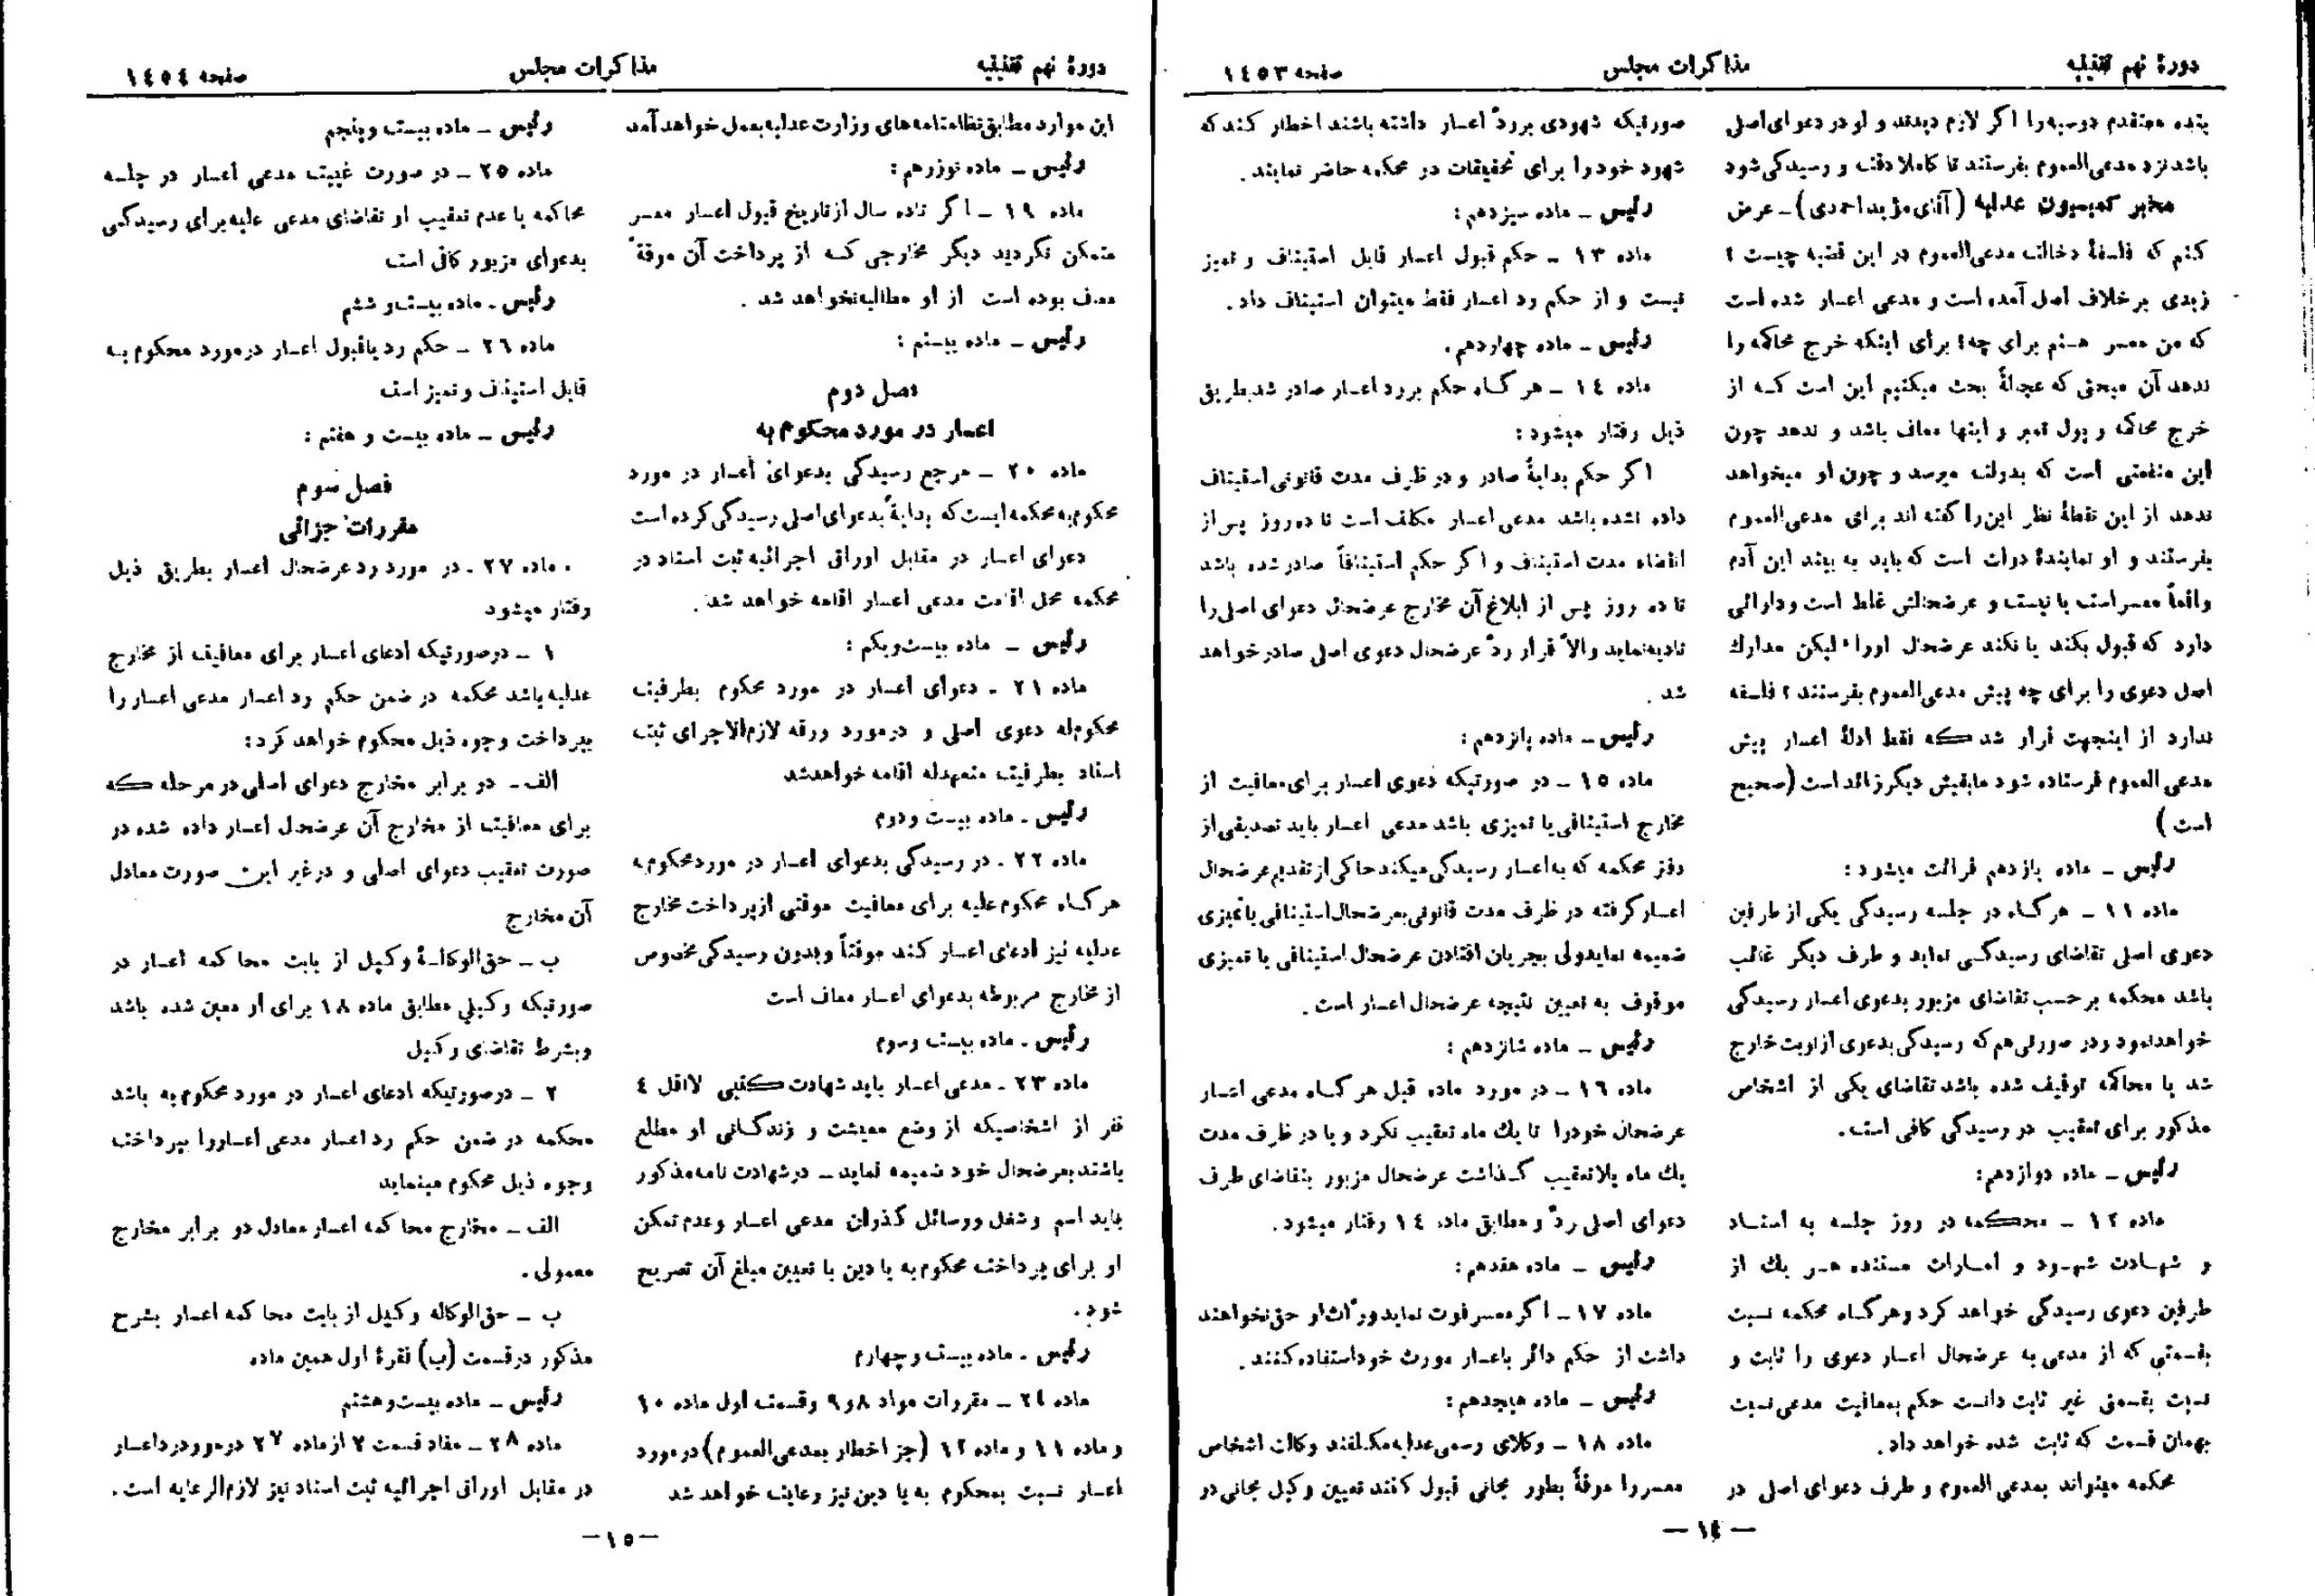 دورهٔ نهم تقنینیه
مذاکرات مجلس
صفحه ۱٤٥۳
بنده معتقدم دوسیه را اگر لازم دیدند و لو در دعوای اصلی
باشد نزد مدعی‌العموم بفرستند تا کاملا دقت و رسیدگی شود
مخبر کمیسیون عدلیه (آقای مؤید احمدی) ـ عرض
کنم که فلسفهٔ دخالت مدعی‌العموم در این قضیه چیست ؟
زیدی برخلاف اصل آمده است و مدعی اعسار شده است
که من معسر هستم برای چه؟ برای اینکه خرج محاکمه را
ندهد آن مبحثی که عجالةً بحث میکنیم این است که از
خرج محاکمه و پول تمبر و اینها معاف باشد و ندهد چون
این منفعتی است که بدولت میرسد و چون او میخواهد
ندهد از این نقطهٔ نظر این را گفته اند برای مدعی‌العموم
بفرستند و او نمایندهٔ دولت است که باید به بیند این آدم
واقعاً معسر است یا نیست و عرضحالش غلط است و دارائی
دارد که قبول بکند یا نکند عرضحال اورا، لیکن مدارك
اصل دعوی را برای چه پیش مدعی‌العموم بفرستند ؟ فلسفه
ندارد از اینجهت قرار شد که فقط ادلهٔ اعسار پیش
مدعی العموم فرستاده شود مابقیش دیگر زائد است (صحیح
است )
رئیس ـ ماده یازدهم قرائت میشود :
ماده ۱۱ ـ هر گاه در جلسه رسیدگی یکی از طرفین
دعوی اصلی تقاضای رسیدگی نماید و طرف دیگر غائب
باشد محکمه بر حسب تقاضای مزبور بدعوی اعسار رسیدگی
خواهد نمود و در صورتی هم که رسیدگی بدعوی از نوبت خارج
شد یا محاکمه توقیف شده باشد تقاضای یکی از اشخاص
مذکور برای تعقیب در رسیدگی کافی است.
رئیس ـ ماده دوازدهم:
ماده ۱۲ ـ محکمه در روز جلسه به اسناد
و شهادت شهود و امارات مستنده هر یك از
طرفین دعوی رسیدگی خواهد کرد و هر گاه محکمه نسبت
بقسمتی که از مدعی به عرضحال اعسار دعوی را ثابت و
نسبت بقسمتی غیر ثابت دانست حکم بمعافیت مدعی نسبت
بهمان قسمت که ثابت شده خواهد داد.
محکمه میتواند بمدعی العموم و طرف دعوای اصلی در
صورتیکه شهودی بررد اعسار داشته باشند اخطار کند که
شهود خود را برای تحقیقات در محکمه حاضر نمایند .
رئیس ـ ماده سیزدهم :
ماده ۱۳ ـ حکم قبول اعسار قابل استیناف و تمیز
نیست و از حکم رد اعسار فقط میتوان استیناف داد .
رئیس ـ ماده چهاردهم .
ماده ۱٤ ـ هر گاه حکم بررد اعسار صادر شد بطریق
ذیل رفتار میشود :
اگر حکم بدایةً صادر و در ظرف مدت قانونی استیناف
داده نشده باشد مدعی اعسار مکلف است تا ده روز پس از
انقضاء مدت استیناف و اگر حکم استینافاً صادر شده باشد
تا ده روز پس از ابلاغ آن مخارج عرضحال دعوای اصلی را
تادیه نماید والاّ قرار ردّ عرضحال دعوی اصلی صادر خواهد
شد .
رئیس ـ ماده پانزدهم :
ماده ۱٥ ـ در صورتیکه دعوی اعسار برای معافیت از
مخارج استینافی یا تمیزی باشد مدعی اعسار باید تصدیقی از
دفتر محکمه که به اعسار رسیدگی میکند حاکی از تقدیم عرضحال
اعسار گرفته در ظرف مدت قانونی بعرضحال استینافی یا تمیزی
ضمیمه نماید ولی بجریان افتادن عرضحال استینافی یا تمیزی
موقوف به تعیین نتیجه عرضحال اعسار است .
رئیس ـ ماده شانزدهم :
ماده ۱٦ ـ در مورد ماده قبل هر گاه مدعی اعسار
عرضحال خود را تا یك ماه تعقیب نکرد و یا در ظرف مدت
یك ماه بلاتعقیب گذاشت عرضحال مزبور بتقاضای طرف
دعوای اصلی ردّ و مطابق ماده ۱٤ رفتار میشود .
رئیس ـ ماده هفدهم :
ماده ۱۷ ـ اگر معسر فوت نماید ورّاث او حق نخواهند
داشت از حکم دائر باعسار مورث خود استفاده کنند .
رئیس ـ ماده هیجدهم :
ماده ۱۸ ـ وکلای رسمی عدلیه مکلفند وکالت اشخاص
معسر را موقةً بطور مجانی قبول کنند تعیین وکیل مجانی در
— ۱٤ —
دورهٔ نهم تقنینیه
مذاکرات مجلس
صفحه ۱٤٥٤
این موارد مطابق نظامنامه‌های وزارت عدلیه بعمل خواهد آمد
رئیس ـ ماده نوزدهم :
ماده ۱۹ ـ اگر تا ده سال از تاریخ قبول اعسار معسر
متمکن نگردید دیگر مخارجی که از پرداخت آن موقةً
معاف بوده است از او مطالبه نخواهد شد .
رئیس ـ ماده بیستم :
فصل دوم
اعسار در مورد محکوم به
ماده ۲۰ ـ مرجع رسیدگی بدعوای اعسار در مورد
محکوم به محکمه ایست که بدایةً بدعوای اصلی رسیدگی کرده است
دعوای اعسار در مقابل اوراق اجرائیه ثبت اسناد در
محکمه محل اقامت مدعی اعسار اقامه خواهد شد .
رئیس ـ ماده بیست ویکم :
ماده ۲۱ ـ دعوای اعسار در مورد محکوم بطرفیت
محکوم‌له دعوی اصلی و در مورد ورقه لازم‌الاجرای ثبت
اسناد بطرفیت متعهدله اقامه خواهد شد
رئیس ـ ماده بیست و دوم
ماده ۲۲ ـ در رسیدگی بدعوای اعسار در مورد محکوم به
هر گاه محکوم علیه برای معافیت موقتی از پرداخت مخارج
عدلیه نیز ادعای اعسار کند موقتاً و بدون رسیدگی مخصوص
از مخارج مربوطه بدعوای اعسار معاف است
رئیس ـ ماده بیست وسوم
ماده ۲۳ ـ مدعی اعسار باید شهادت کتبی لااقل ٤
نفر از اشخاصیکه از وضع معیشت و زندگانی او مطلع
باشند بعرضحال خود ضمیمه نماید ـ در شهادت نامه مذکور
باید اسم و شغل و وسائل گذران مدعی اعسار و عدم تمکن
او برای پرداخت محکوم به یا دین با تعیین مبلغ آن تصریح
شود .
رئیس ـ ماده بیست و چهارم
ماده ۲٤ ـ مقررات مواد ۸ و ۹ وقسمت اول ماده ۱۰
و ماده ۱۱ و ماده ۱۲ (جز اخطار بمدعی العموم) در مورد
اعسار نسبت بمحکوم به یا دین نیز رعایت خواهد شد
رئیس ـ ماده بیست وپنجم
ماده ۲٥ ـ در صورت غیبت مدعی اعسار در جلسه
محاکمه یا عدم تعقیب او تقاضای مدعی علیه برای رسیدگی
بدعوای مزبور کافی است
رئیس ـ ماده بیست و ششم
ماده ۲٦ ـ حکم رد یا قبول اعسار در مورد محکوم به
قابل استیناف و تمیز است
رئیس ـ ماده بیست و هفتم :
فصل سوم
مقررات جزائی
ماده ۲۷ ـ در مورد رد عرضحال اعسار بطریق ذیل
رفتار میشود
۱ ـ در صورتیکه ادعای اعسار برای معافیت از مخارج
عدلیه باشد محکمه در ضمن حکم رد اعسار مدعی اعسار را
بپرداخت وجوه ذیل محکوم خواهد کرد :
الف ـ دو برابر مخارج دعوای اصلی در مرحله که
برای معافیت از مخارج آن عرضحال اعسار داده شده در
صورت تعقیب دعوای اصلی و در غیر این صورت معادل
آن مخارج
ب ـ حق‌الوکالهٔ وکیل از بابت محاکمه اعسار در
صورتیکه وکیلی مطابق ماده ۱۸ برای او معین شده باشد
وبشرط تقاضای وکیل
۲ ـ در صورتیکه ادعای اعسار در مورد محکوم به باشد
محکمه در ضمن حکم رد اعسار مدعی اعسار را بپرداخت
وجوه ذیل محکوم مینماید
الف ـ مخارج محاکمه اعسار معادل دو برابر مخارج
معمولی .
ب ـ حق‌الوکاله وکیل از بابت محاکمه اعسار بشرح
مذکور در قسمت (ب) فقرهٔ اول همین ماده
رئیس ـ ماده بیست و هشتم
ماده ۲۸ ـ مفاد قسمت ۲ از ماده ۲۷ در مورد رد اعسار
در مقابل اوراق اجرائیه ثبت اسناد نیز لازم‌الرعایه است .
— ۱٥ —